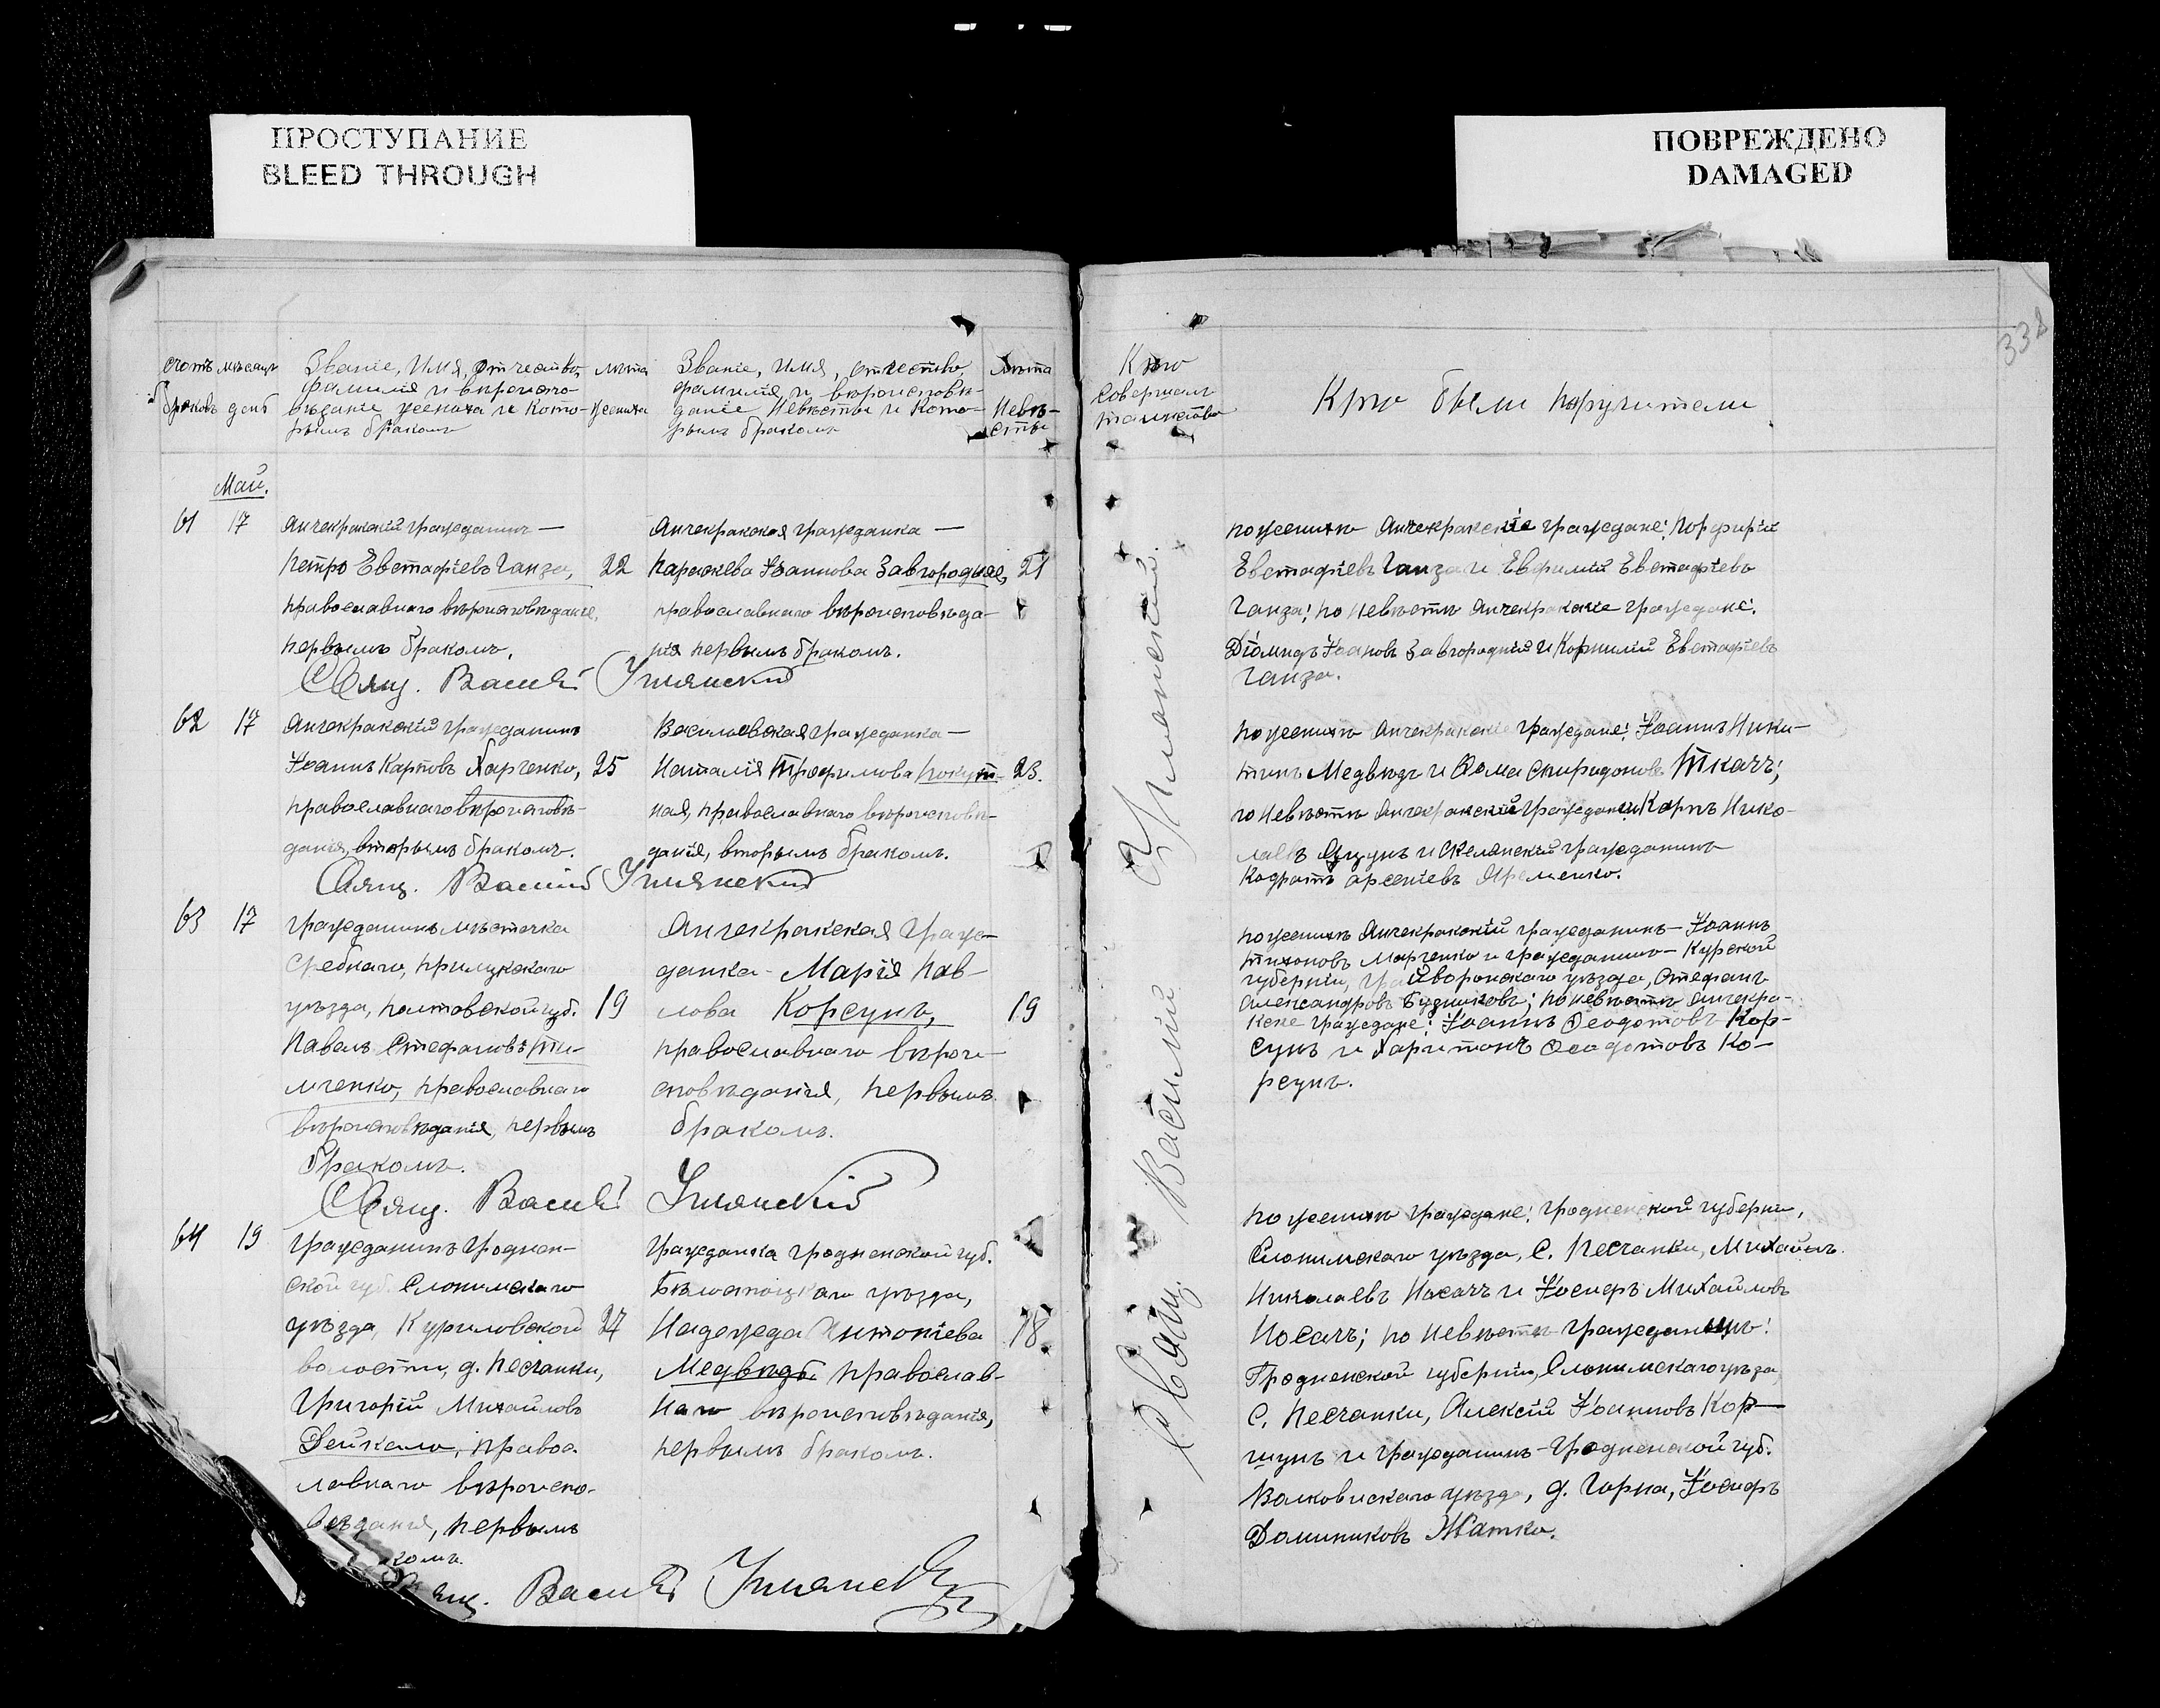 ПРОСТУПАНИЕ
BLEED THROUGH
ПОВРЕЖДЕНО
DAMAGED
338
счетъ
браковъ
мѣсяцъ
день
Званіе, Имя, Отчество,
фамилія и вѣроиспо-
вѣданіе жениха и кото-
рымъ бракомъ
лѣта
жениха
Званіе, имя, отчество,
фамилія, и вѣроисповѣ-
даніе Невѣсты и кото-
рымъ бракомъ
Лѣта
Невѣ-
сты
Кто
совершалъ
таинство
Кто были поручители
Май.
61 17
Анчекракскій гражданинъ —
Петръ Евстафіевъ Ганза,
православнаго вѣроисповѣданія,
первымъ бракомъ.
22
Анчекракская гражданка —
Параскева Іоаннова Завгородняя,
православнаго вѣроисповѣда-
нія первымъ бракомъ.
21
Свящ. Василій Уманскій
по женихѣ Анчекракскіе граждане: Порфирій
Евстафіевъ Ганза и Евфимій Евстафіевъ
Ганза; по невѣстѣ Анчекракскіе граждане:
Діомидъ Іоановъ Завгородній и Корнилій Евстафіевъ
Ганза.
62 17
Анчекракскій гражданинъ
Іоаннъ Карповъ Харченко,
православнаго вѣроисповѣ-
данія, вторымъ бракомъ.
25
Васильевская гражданка —
Наталія Трофимова Покут-
ная, православнаго вѣроисповѣ-
данія, вторымъ бракомъ.
23.
Свящ. Василій Уманскій
по женихѣ Анчекракскіе граждане: Іоаннъ Ники-
тинъ Медвѣдь и Ѳома Спиридоновъ Ткачъ;
по невѣстѣ Анчекракскій гражданинъ Карпъ Нико-
лаевъ и Скелянскій гражданинъ
Кодратъ Арсеніевъ Яременко.
63 17
гражданинъ мѣстечка
Сребнаго, Прилукскаго
уѣзда, Полтовской губ.
Павелъ Стефановъ Ти-
мченко, православнаго
вѣроисповѣданія, первымъ
бракомъ.
19
Анчекракская граж-
данка - Марія Пав-
лова Корсунъ,
православнаго вѣрои-
сповѣданія, первымъ
бракомъ.
19
Свящ. Василій Уманскій
по женихѣ Анчекракскій гражданинъ — Іоаннъ
Тихоновъ Марченко и гражданинъ — Курской
губерніи, Грайворонскаго уѣзда, Стефанъ
Александровъ Будниковъ; по невѣстѣ Анчекра-
кскіе граждане: Іоаннъ Ѳеодотовъ Кор-
сунъ и Харитонъ Ѳеодотовъ Ко-
рсунъ.
64 19
гражданинъ Гроднен-
ской губ. Слонимскаго
уѣзда, Куриловской
волости, д. Песчанки,
Григорій Михайловъ
Дейкало, правос
лавнаго вѣроиспо-
вѣданія, первымъ
27
Гражданка Гродненской губ.
Бѣлостоцкаго уѣзда,
Надежда Антоніева
Медвѣдь православ-
наго вѣроисповѣданія,
первымъ бракомъ.
18.
Василій Уманскій
по женихѣ граждане: Гродненской губерніи,
Слонимскаго уѣзда, С. Песчанки, Михаилъ
Николаевъ Носачъ и Іосифъ Михайловъ
Носачъ; по невѣстѣ гражданинъ:
Гродненской губерніи, Слонимскаго уѣзда
С. Песчанки, Алексій Іоанновъ Кор—
шунъ и гражданинъ Гродненской губ.
Волковискаго уѣзда, д. Горна, Іосифъ
Доминиковъ Жатко.
Свящ. Василій Уманскій.